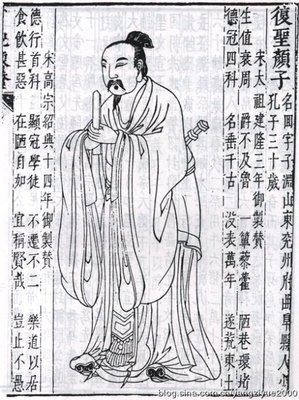 復聖顏子
名回字子淵山東兗州府曲阜縣人少
孔子三十歲
宋太祖建隆三年御製贊
生值衰周 爵不及魯 一簞藜藿 陋巷環堵
德冠四科 名垂千古 没表萬年 遂荒東土
宋高宗紹興十四年御製贊
德行首科 顯冠學徒 不遷不二 樂道以居
食飲甚惡 在陋自如 宜稱賢哉 豈止不愚